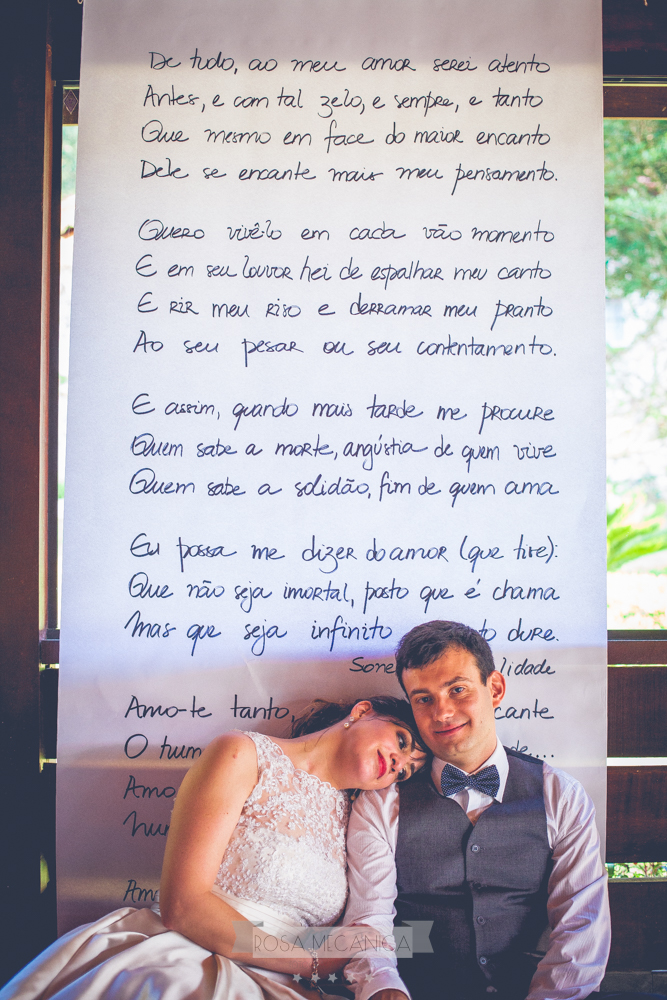 De tudo, ao meu amor serei atento
Antes, e com tal zelo, e sempre, e tanto
Que mesmo em face do maior encanto
Dele se encante mais meu pensamento.
Quero vivê-lo em cada vão momento
E em seu louvor hei de espalhar meu canto
E rir meu riso e derramar meu pranto
Ao seu pesar ou seu contentamento.
E assim, quando mais tarde me procure
Quem sabe a morte, angústia de quem vive
Quem sabe a solidão, fim de quem ama
Eu possa me dizer do amor (que tive):
Que não seja imortal, posto que é chama
Mas que seja infinito to dure.
Sone lidade
Amo-te tanto, cante
O hum de....
Amo
hu
Am
ROSA MECÂNICA